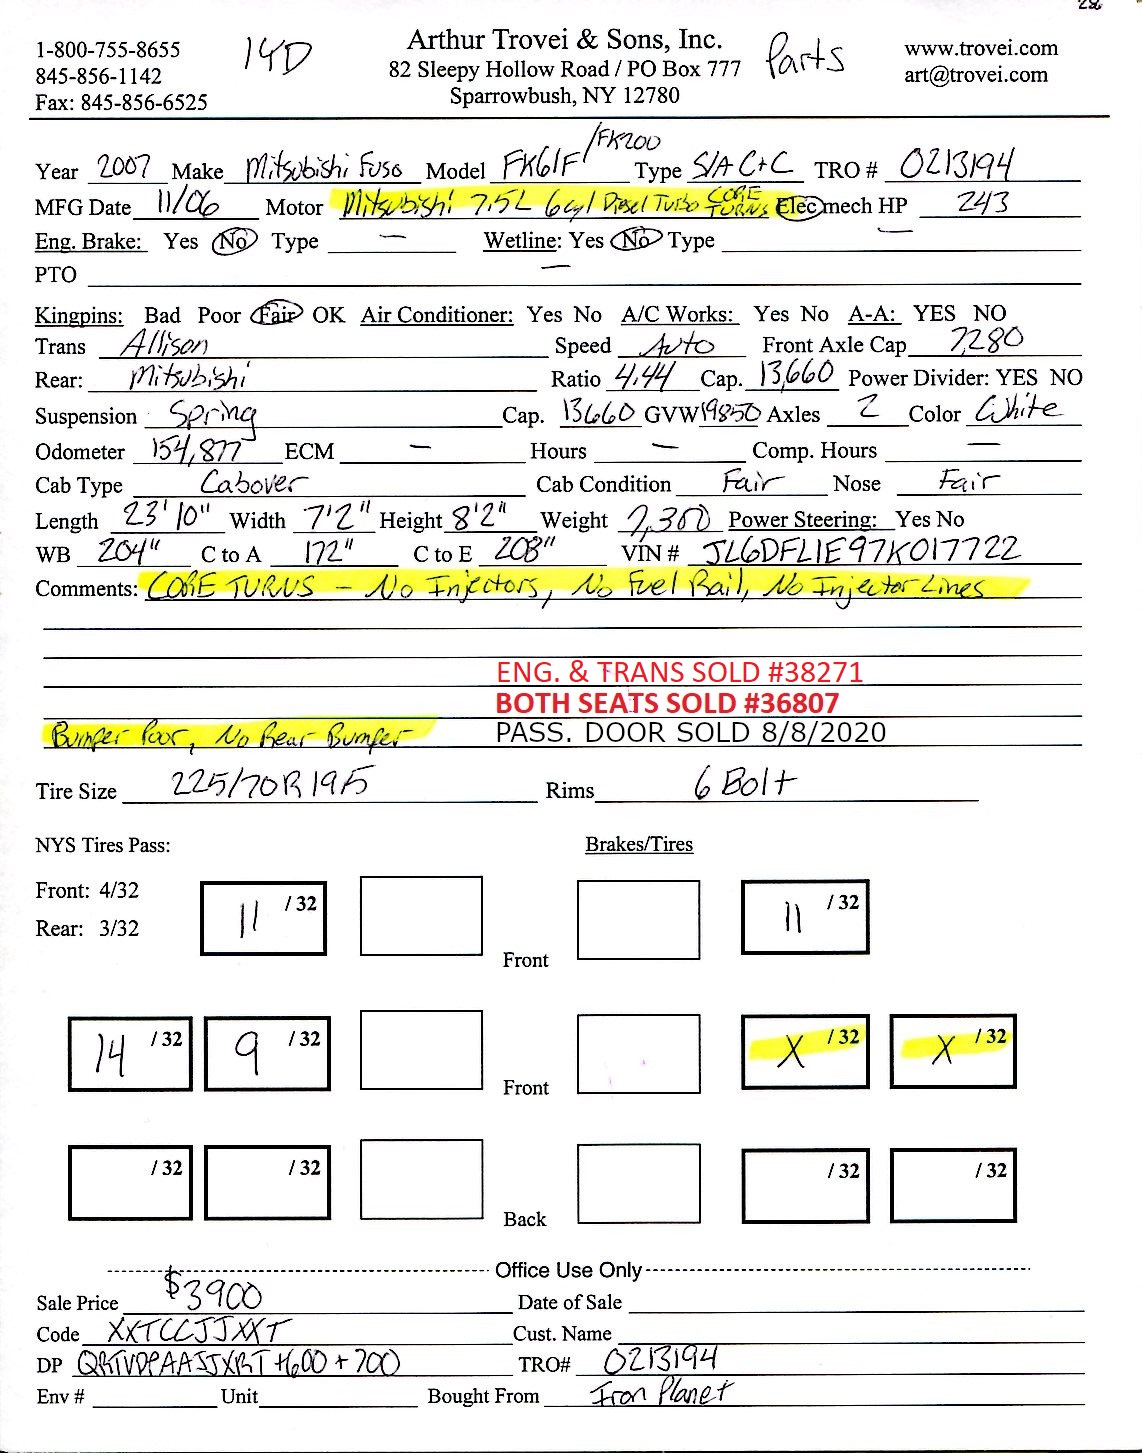 28
1-800-755-8655
845-856-1142
Fax: 845-856-6525
14D
Arthur Trovei & Sons, Inc.
82 Sleepy Hollow Road / PO Box 777
Sparrowbush, NY 12780
Parts
www.trovei.com
art@trovei.com
Year 2007 Make Mitsubishi Fuso Model FK61F/FK200 Type S/A C+C TRO # 0213194
MFG Date 11/06 Motor Mitsubishi 7.5L 6cyl Diesel Turbo CORE TURNS Elec mech HP 243
Eng. Brake: Yes No Type — Wetline: Yes No Type —
PTO —
Kingpins: Bad Poor Fair OK Air Conditioner: Yes No A/C Works: Yes No A-A: YES NO
Trans Allison Speed Auto Front Axle Cap 7,280
Rear: Mitsubishi Ratio 4.44 Cap. 13,660 Power Divider: YES NO
Suspension Spring Cap. 13660 GVW 19850 Axles 2 Color White
Odometer 154,877 ECM — Hours — Comp. Hours —
Cab Type Cabover Cab Condition Fair Nose Fair
Length 23'10" Width 7'2" Height 8'2" Weight 7,300 Power Steering: Yes No
WB 204" C to A 172" C to E 208" VIN # JL6DFL1E97K017722
Comments: CORE TURNS – No Injectors, No Fuel Rail, No Injector Lines
ENG. & TRANS SOLD #38271
BOTH SEATS SOLD #36807
Bumper Poor, No Rear Bumper PASS. DOOR SOLD 8/8/2020
Tire Size 225/70R19.5 Rims 6 Bolt
NYS Tires Pass: Brakes/Tires
Front: 4/32
Rear: 3/32
11 /32 Front 11 /32
14 /32 9 /32 Front X /32 X /32
/32 /32 Back /32 /32
Office Use Only
Sale Price $3900 Date of Sale
Code XXTCCJJXXT Cust. Name
DP QRTVDPAAJJXRT +600 + 700 TRO# 0213194
Env # Unit Bought From Iron Planet